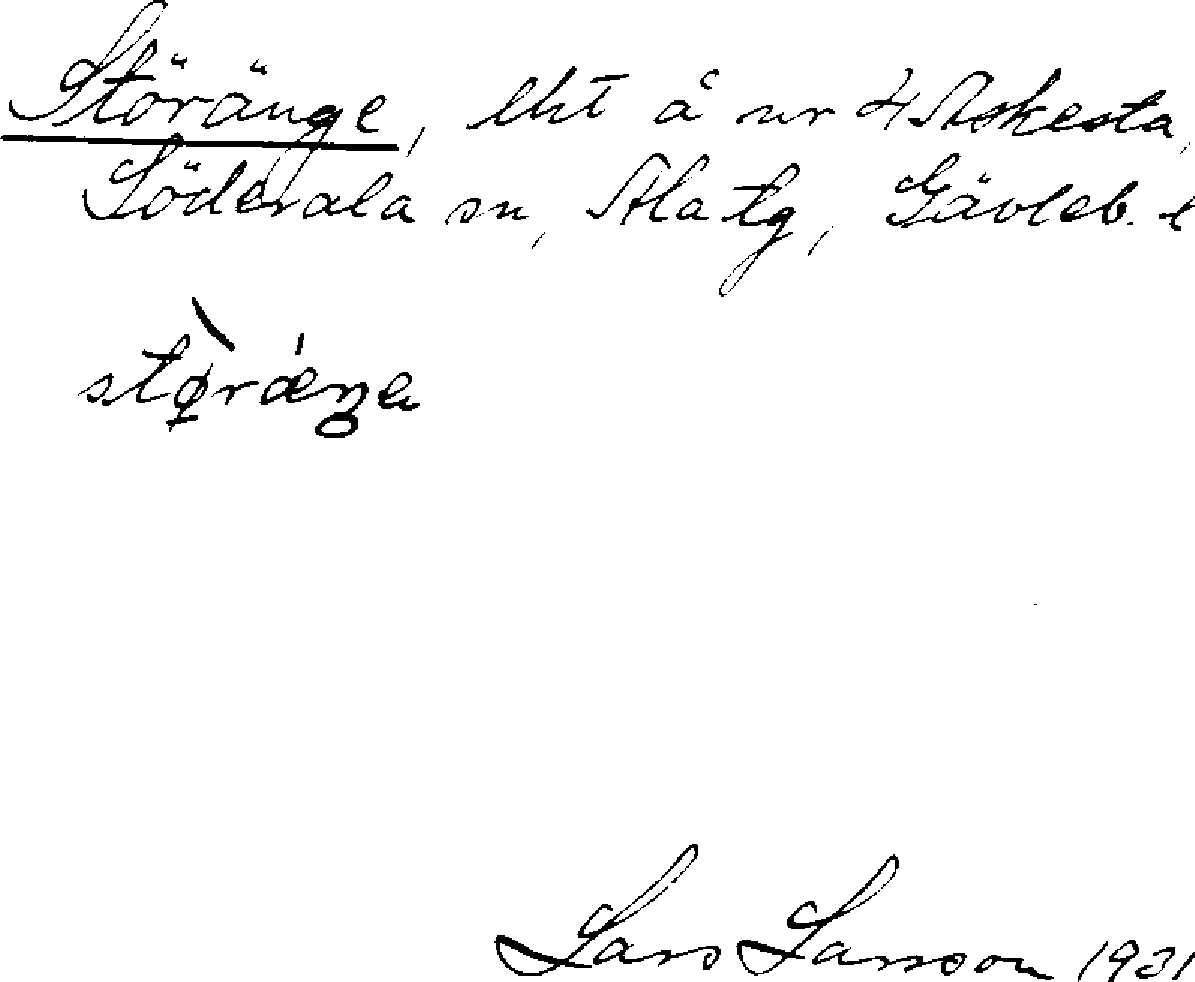 Störänge, lht å nr 4 Askesta,
Söderala sn, Ala tg, Gävleb. l
Lars Larsson 1931